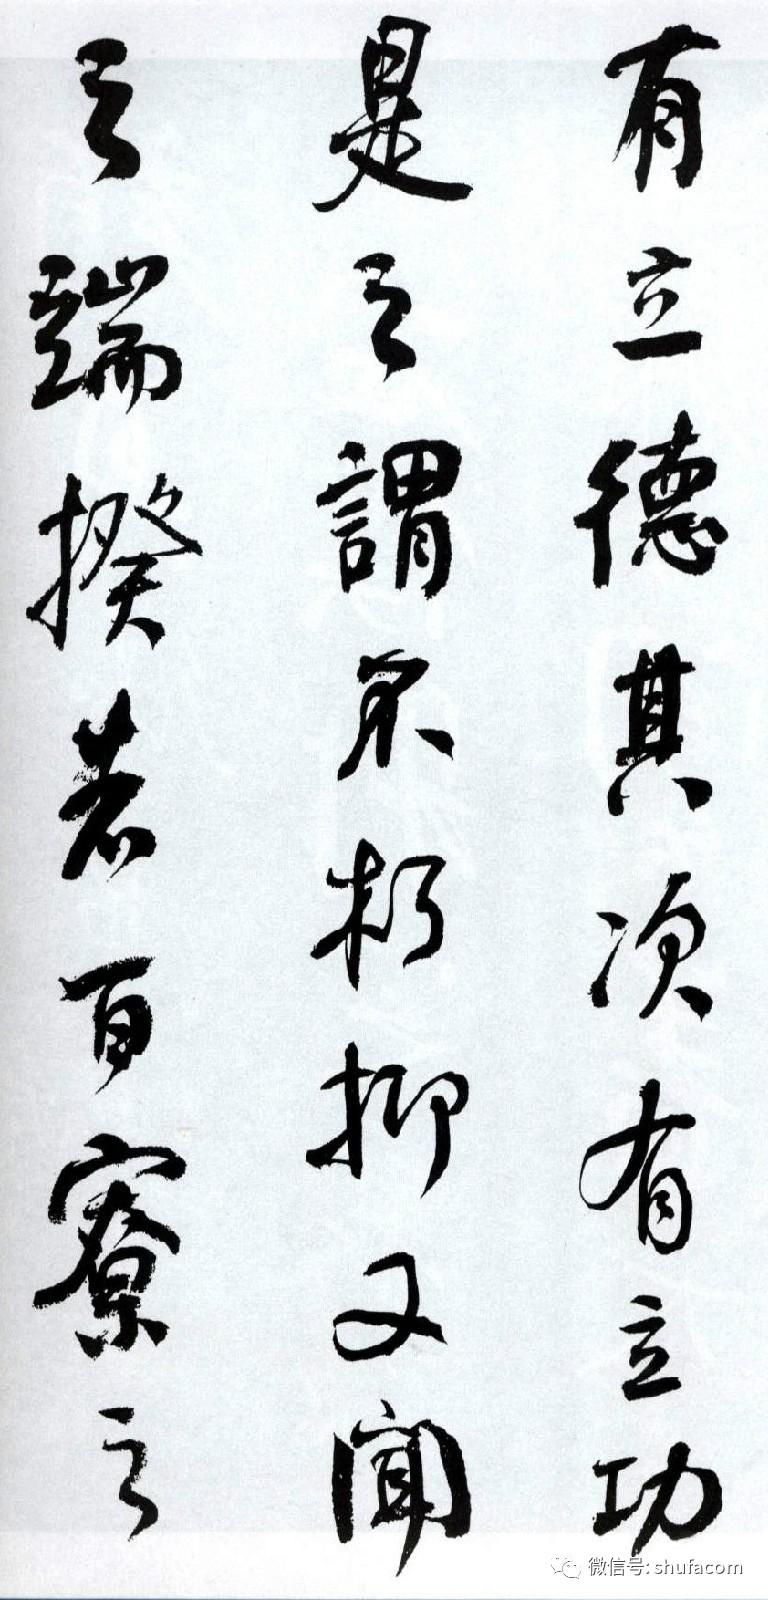 有立德其次有立功
是之謂不朽抑又聞
之端揆者百寮之
微信号: shufacom